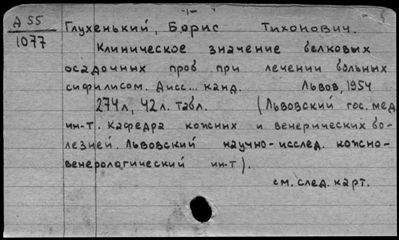 Д 55
1077
Глухенький, Борис Тихонович.
Клиническое значение белковых
осадочных проб при лечении больных
сифилисом. Дисс... канд. Львов, 1954
274 л, 42 л. табл. (Львовский гос. мед.
ин-т. Кафедра кожных и венерических бо-
лезней. Львовский научно-исслед. кожно-
венерологический ин-т).
см. след. карт.